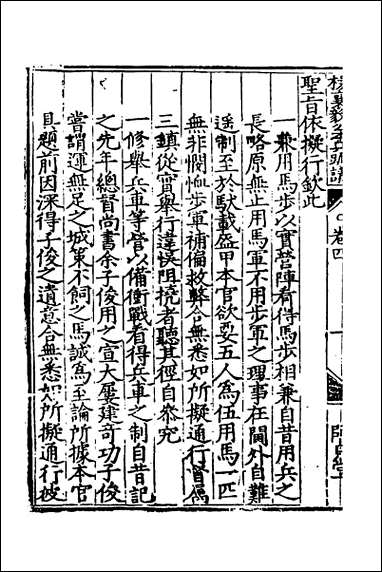 聖旨依擬行欽此
一兼用馬步以實營陣看得馬步相兼自昔用兵之
長略原無止用馬軍不用步軍之理事在閫外自難
遙制至於馱載盔甲本官欲要五人為伍用馬一匹
無非憫恤步軍補偏救弊合無悉如所擬通行督屬
三鎮從實舉行違悞阻撓者聽其徑自叅究
一修舉兵車等營以備衝戰看得兵車之制自昔記
之先年總督尚書余子俊用之宣大屢建奇功子俊
嘗謂運無足之城策不飼之馬誠為至論所據本官
具題前因深得子俊之遺意合無悉如所擬通行彼
卷四